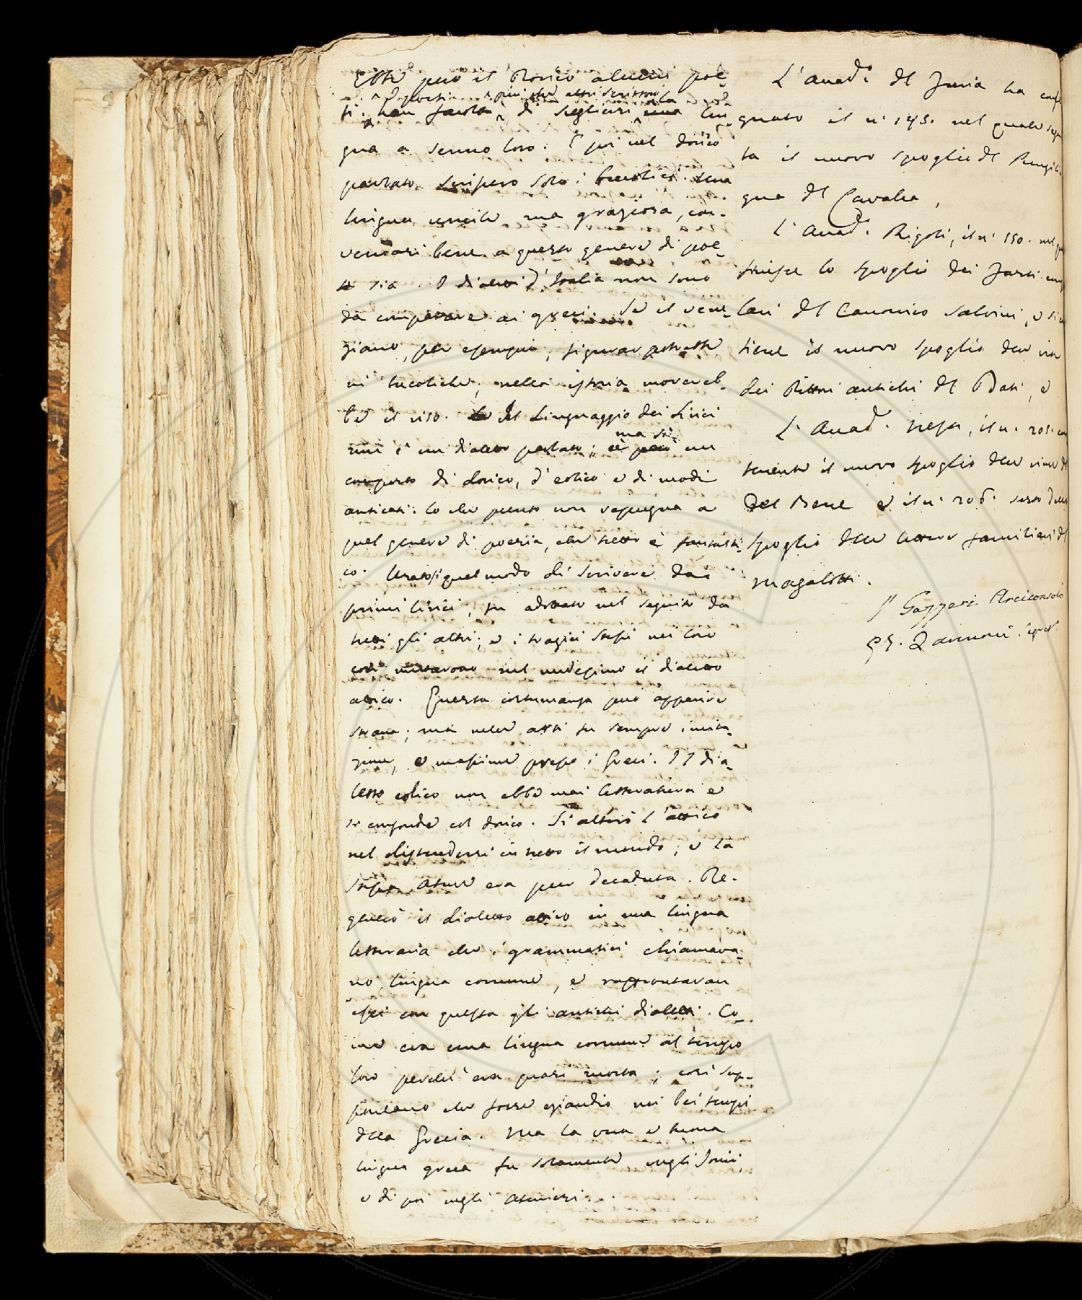 Ebbe però il Dorico alcuni poe-
di questi più che altri scrittori
ti di scegliersi una lin-
gua a senno loro. E poi nel dorico
parlato scripero solo i bucolici: una
lingua umile, ma graziosa, con-
venivasi bene a questo genere di poe-
sia. I dialetti d'Italia non sono
da comparare ai greci. Se il vene-
ziano, per esempio, figurar potrebbe
ni bucoliche, nella istoria moverebbe
be il riso. Il Linguaggio dei Lirici
ma sì
non è un dialetto parlato; un
composto di dorico, d'eolico e di modi
anticati: lo che punto non repugna a
quel genere di poesia, che tutto è fantasti-
co. Usato quel modo di scrivere dai
primi lirici, fu adottato nel seguito da
tutti gli altri; e i tragici stessi nei loro
cori mutarono nel medesimo il dialetto
attico. Questa costumanza può apparire
strana; ma nelle arti fu sempre imita-
zione, e massime presso i Greci. Il dia-
letto eolico non ebbe mai letteratura e
si confuse col dorico. Si alterò l'attico
nel distendersi in tutto il mondo; e la
stessa Atene era pur decaduta. Re-
gnò il dialetto attico in una lingua
letteraria che i grammatici chiamava-
no lingua comune, e raffrontavan
essi con questa gli antichi dialetti. Co-
me era una lingua comune al tempo
loro perché era quasi morta; così sup-
ponevano che fosse eziandio nei bei tempi
della Grecia. Ma la vera e buona
lingua greca fu solamente negli Ionii,
e di poi negli Ateniesi.
L'Accad.º Del Furia ha conse-
gnato il nº 145. nel quale
ta il nuovo spoglio del
gua del Cavalca,
L'Accad.º Rigoli, il nº 150. nel
lo spoglio dei
lari del Canonico Salvini, e
tiene il nuovo spoglio delle
dei Pittori antichi del Dati, e
L'Accad.º Nesti, il nº 201.
tenente il nuovo spoglio delle rime
Del Bene e il nº 206.
spoglio delle lettere familiari del
Magalotti.
G. Gazzeri Arciconsolo
G. B. Zannoni Segret.º